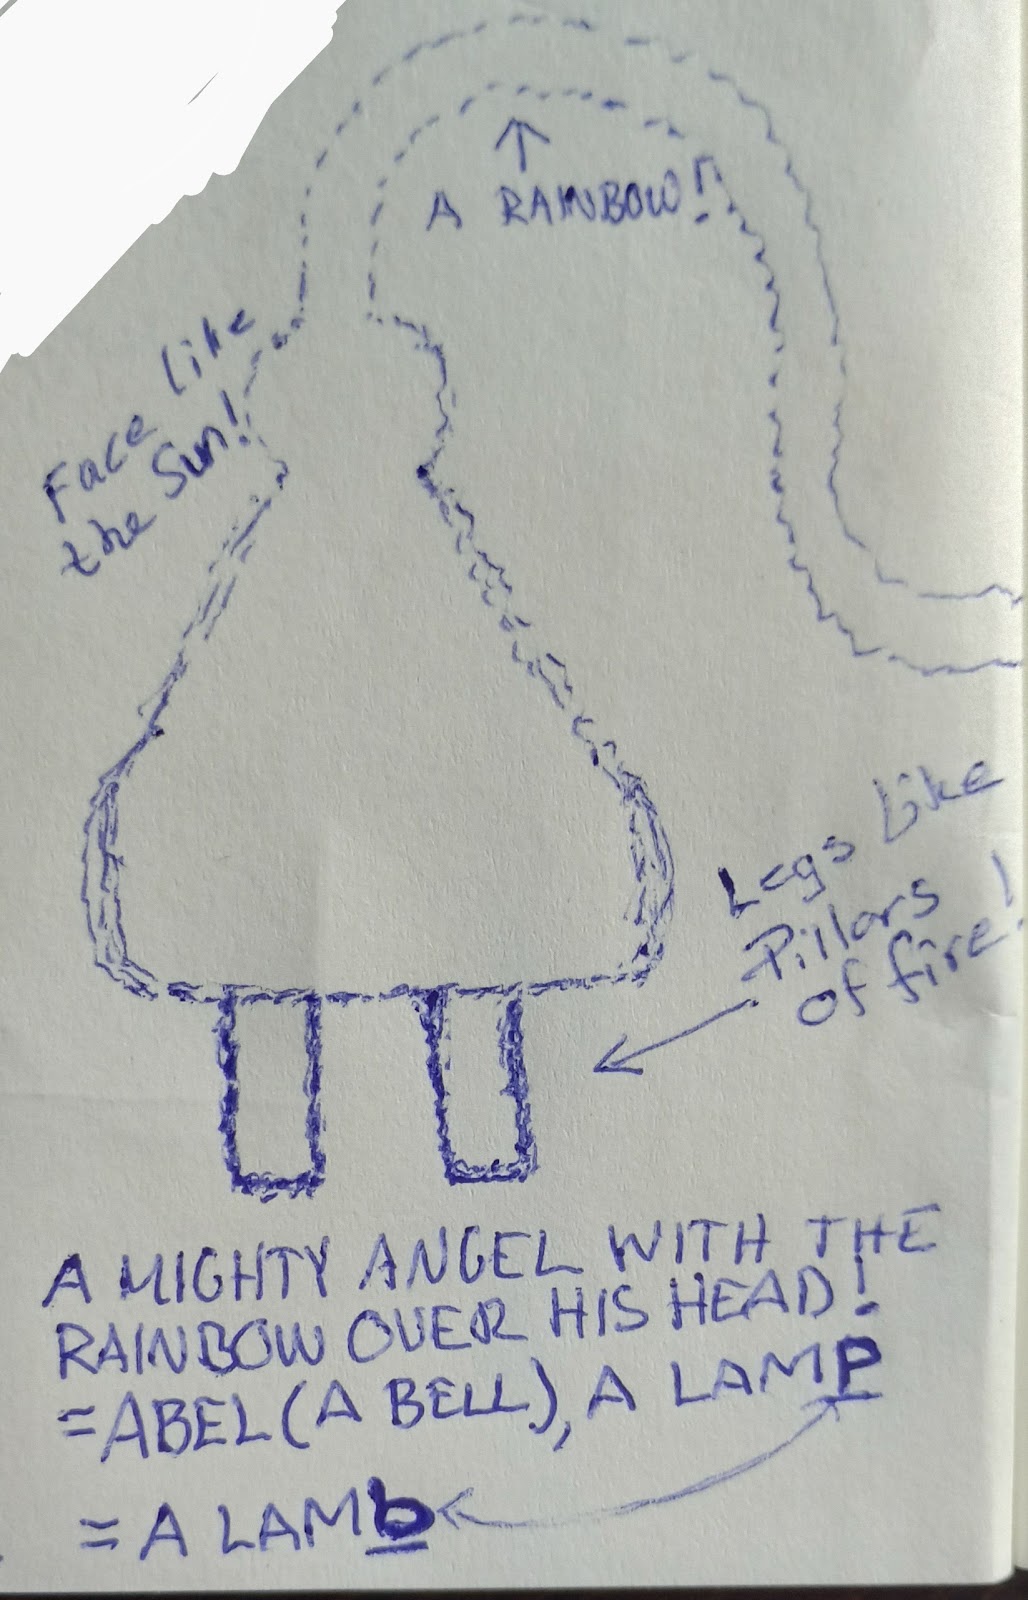 A RAINBOW!
Face like
the Sun!
Legs like
Pillars
of fire!
A MIGHTY ANGEL WITH THE
RAINBOW OVER HIS HEAD!
=ABEL (A BELL), A LAMP
= A LAMb